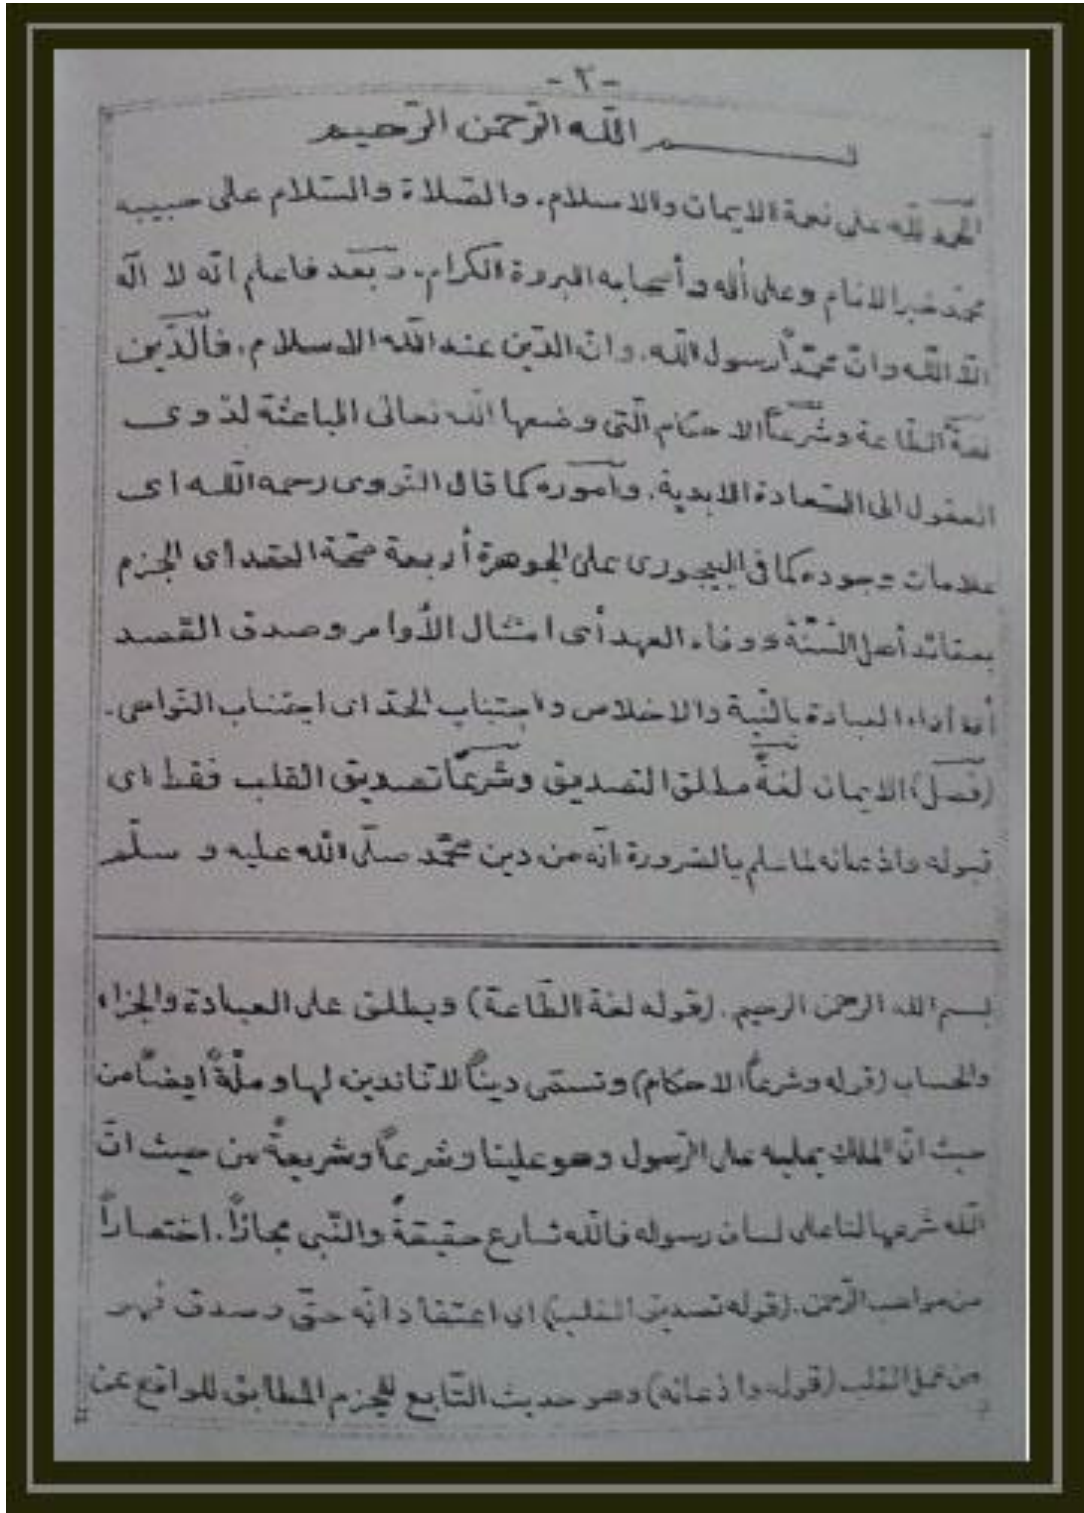 -٢-
بسم الله الرّحمن الرّحيم
الحمد لله على نعمة الايمان والاسلام. والصّلاة والسّلام على حبيبه
محمّد خير الانام وعلى أله وأصحابه البررة الكرام. وبعد فاعلم انّه لا اله
الّا الله وانّ محمّداً رسول الله. وانّ الدّين عند الله الاسلام. فالدّين
لغةً الطّاعة وشرعاً الاحكام الّتى وضعها الله تعالى الباعثة لذوى
العقول الى السّعادة الابدية. وأموره كما قال النّووى رحمه الله اى
علامات وجوده كما فى البيجورى على الجوهرة أربعة صحّة العقد أى الجزم
بعقائد أهل السّنّة ووفاء العهد أى امتثال الأوامر وصدق القصد
أى أداء العبادة بالنّية والاخلاص واجتناب الحدّ اى اجتناب النّواهى.
(فصل) الايمان لغةً مطلق التصديق وشرعًا تصديق القلب فقط اى
قبوله واذعانه لما علم بالضرورة انّه من دين محمّد صلّى الله عليه و سلّم
بسم الله الرحمن الرحيم. (قوله لغة الطّاعة) ويطلق على العبادة والجزاء
والحساب (قوله وشرعاً الاحكام) وتسمّى ديناً لانّا ندين لها وملّةً ايضاً من
حيث انّ الملك يمليه على الرّسول وهو علينا وشرعاً وشريعةً من حيث انّ
الله شرعها لنا على لسان رسوله فالله شارع حقيقةً والنّبى مجازاً. اختصاراً
من مواهب الرّحمن. (قوله تصديق القلب) اى اعتقاد انّه حقّ وصدق فهو
من عمل القلب (قوله واذعانه) وهو حديث التّابع للجزم المطابق للواقع عن